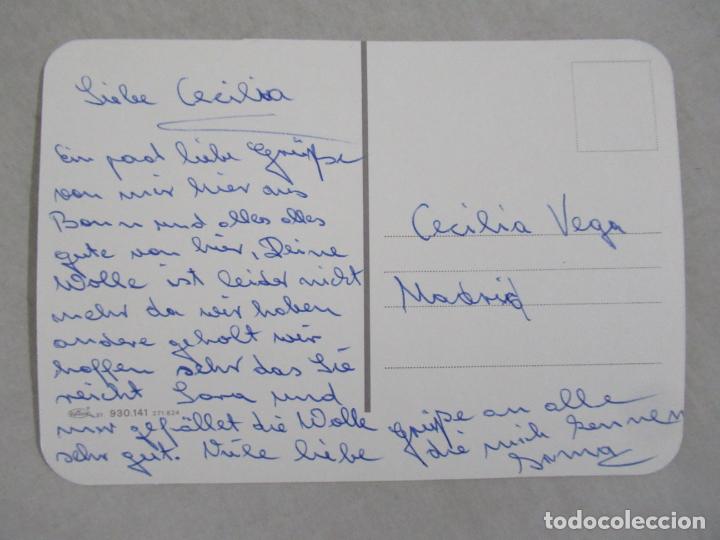 Liebe Cecilia
Ein paar liebe Grüße
von mir hier aus
Bonn und alles alles
gute von hier, Deine
Wolle ist leider nicht
mehr da wir haben
andere geholt wir
hoffen sehr das Sie
reicht Sara und
mir gefället die Wolle
sehr gut. Viele liebe
grüße an alle
die mich kennen
Cecilia Vega
Madrid
930.141 271.624
todocoleccion
todocoleccion.net